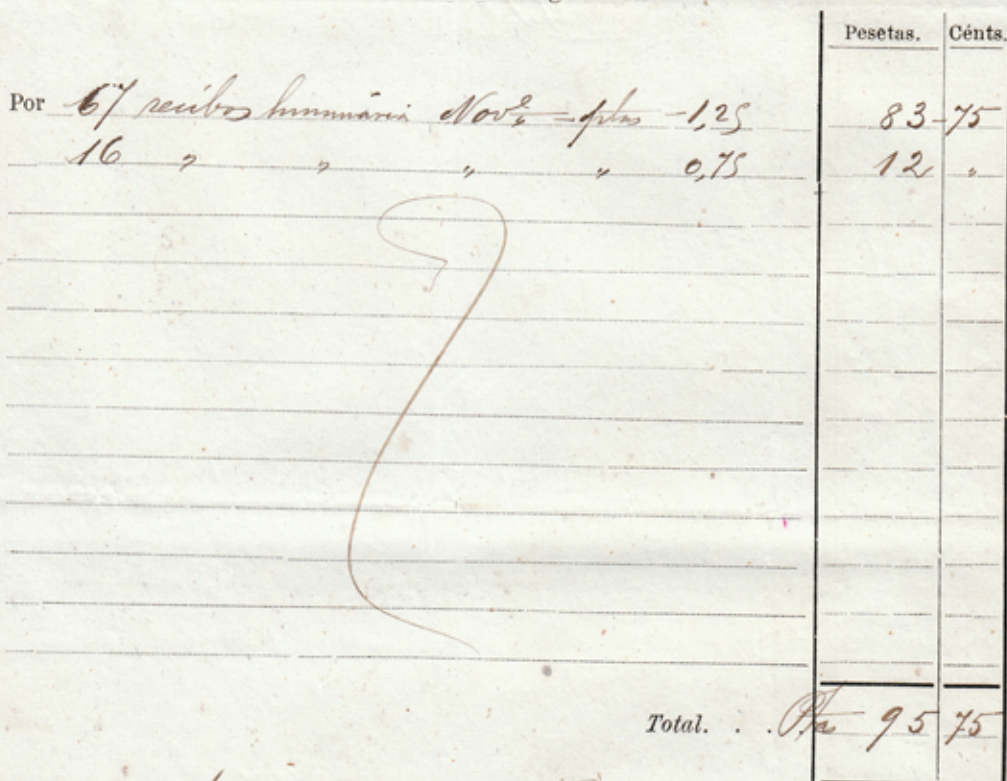 Pesetas. Cénts.
Por 67 recibos Novᵉ = ptas - 1,25 83-75
16 " " " " 0,75 12 "
Total. . . Ptas 95 75